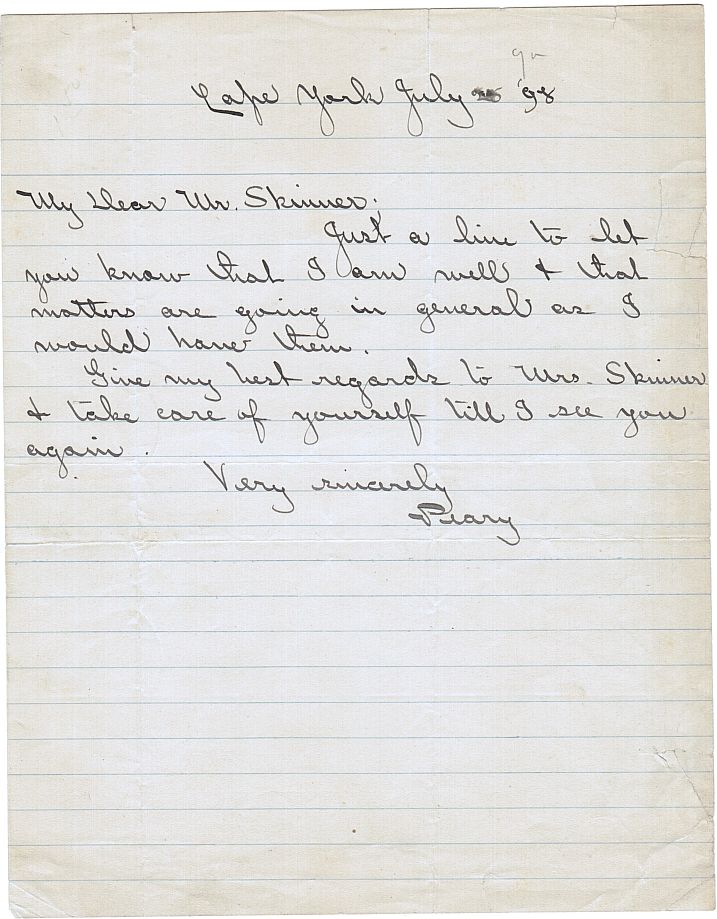 Cape York July '98
My Dear Mr. Skinner;
Just a line to let
you know that I am well & that
matters are going in general as I
would have them.
Give my best regards to Mrs. Skinner
& take care of yourself till I see you
again.
Very sincerely
Peary